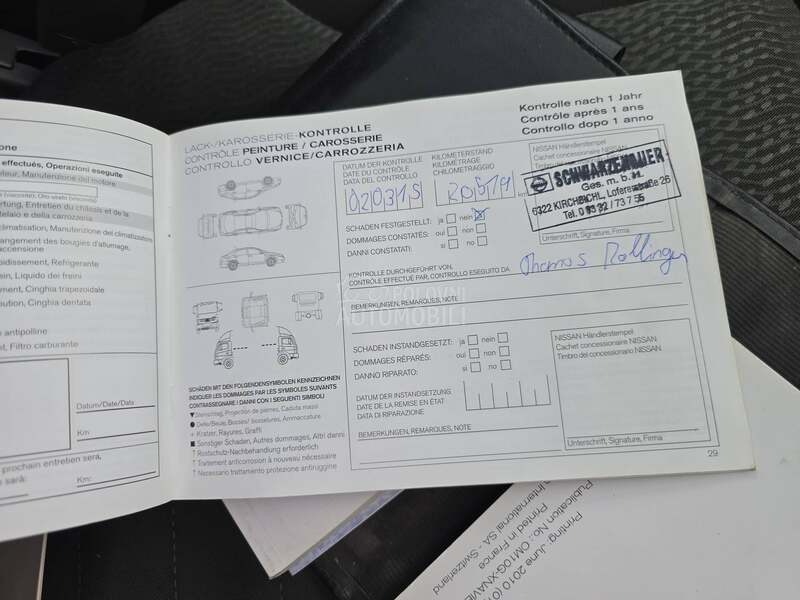 one
effectués, Operazioni eseguite
teur, Manutenzione del motore
telaio e della carrozzeria
climatisation, Manutenzione del climatizzatore
angement des bougies d'allumage,
accensione
oidissement, Refrigerante
ein, Liquido dei freni
ement, Cinghia trapezoidale
ution, Cinghia dentata
antipolline
t, Filtro carburante
Datum/Date/Data
Km:
prochain entretien sera,
sarà:
Km:
LACK-/KAROSSERIE-KONTROLLE
CONTRÔLE PEINTURE / CAROSSERIE
CONTROLLO VERNICE/CARROZZERIA
Kontrolle nach 1 Jahr
Contrôle après 1 ans
Controllo dopo 1 anno
DATUM DER KONTROLLE
DATE DU CONTRÔLE
DATA DEL CONTROLLO
020315
KILOMETERSTAND
KILOMÉTRAGE
CHILOMETRAGGIO
NISSAN Händlerstempel
Cachet concessionnaire NISSAN
SCHWARZENAUER
Ges. m. b. H.
6322 KIRCHBICHL, Lofererstraße 26
Tel. 0 53 32 / 73 7 55
Unterschrift, Signature, Firma
SCHADEN FESTGESTELLT: ja nein
DOMMAGES CONSTATÉS: oui non
DANNI CONSTATATI: si No
KONTROLLE DURCHGEFÜHRT VON,
CONTRÔLE EFFECTUÉ PAR, CONTROLLO ESEGUITO DA
Thomas
BEMERKUNGEN, REMARQUES, NOTE
POLOVNI
AUTOMOBILI
SCHADEN INSTANDGESETZT: ja nein
DOMMAGES RÉPARÉS: oui non
DANNO RIPARATO: si No
NISSAN Händlerstempel
Cachet concessionnaire NISSAN
Timbro del concessionario NISSAN
DATUM DER INSTANDSETZUNG
DATE DE LA REMISE EN ÉTAT
DATA DI RIPARAZIONE
BEMERKUNGEN, REMARQUES, NOTE
Unterschrift, Signature, Firma
SCHÄDEN MIT DEN FOLGENDENSYMBOLEN KENNZEICHNEN
INDIQUER LES DOMMAGES PAR LES SYMBOLES SUIVANTS
CONTRASSEGNARE I DANNI CON I SEGUENTI SIMBOLI
Steinschlag, Projection de pierres, Caduta massi
Delle/Beule, Bosses/ bosselures, Ammaccature
+ Kratzer, Rayures, Graffi
Sonstiger Schaden, Autres dommages, Altri danni
↑ Rostschutz-Nachbehandlung erforderlich
↑ Traitement anticorrosion à nouveau nécessaire
↑ Necessario trattamento protezione antiruggine
29
Printing: June 2010 (0
Publication No.: CM10G-XNAVE
Printed in France
International SA - Switzerland